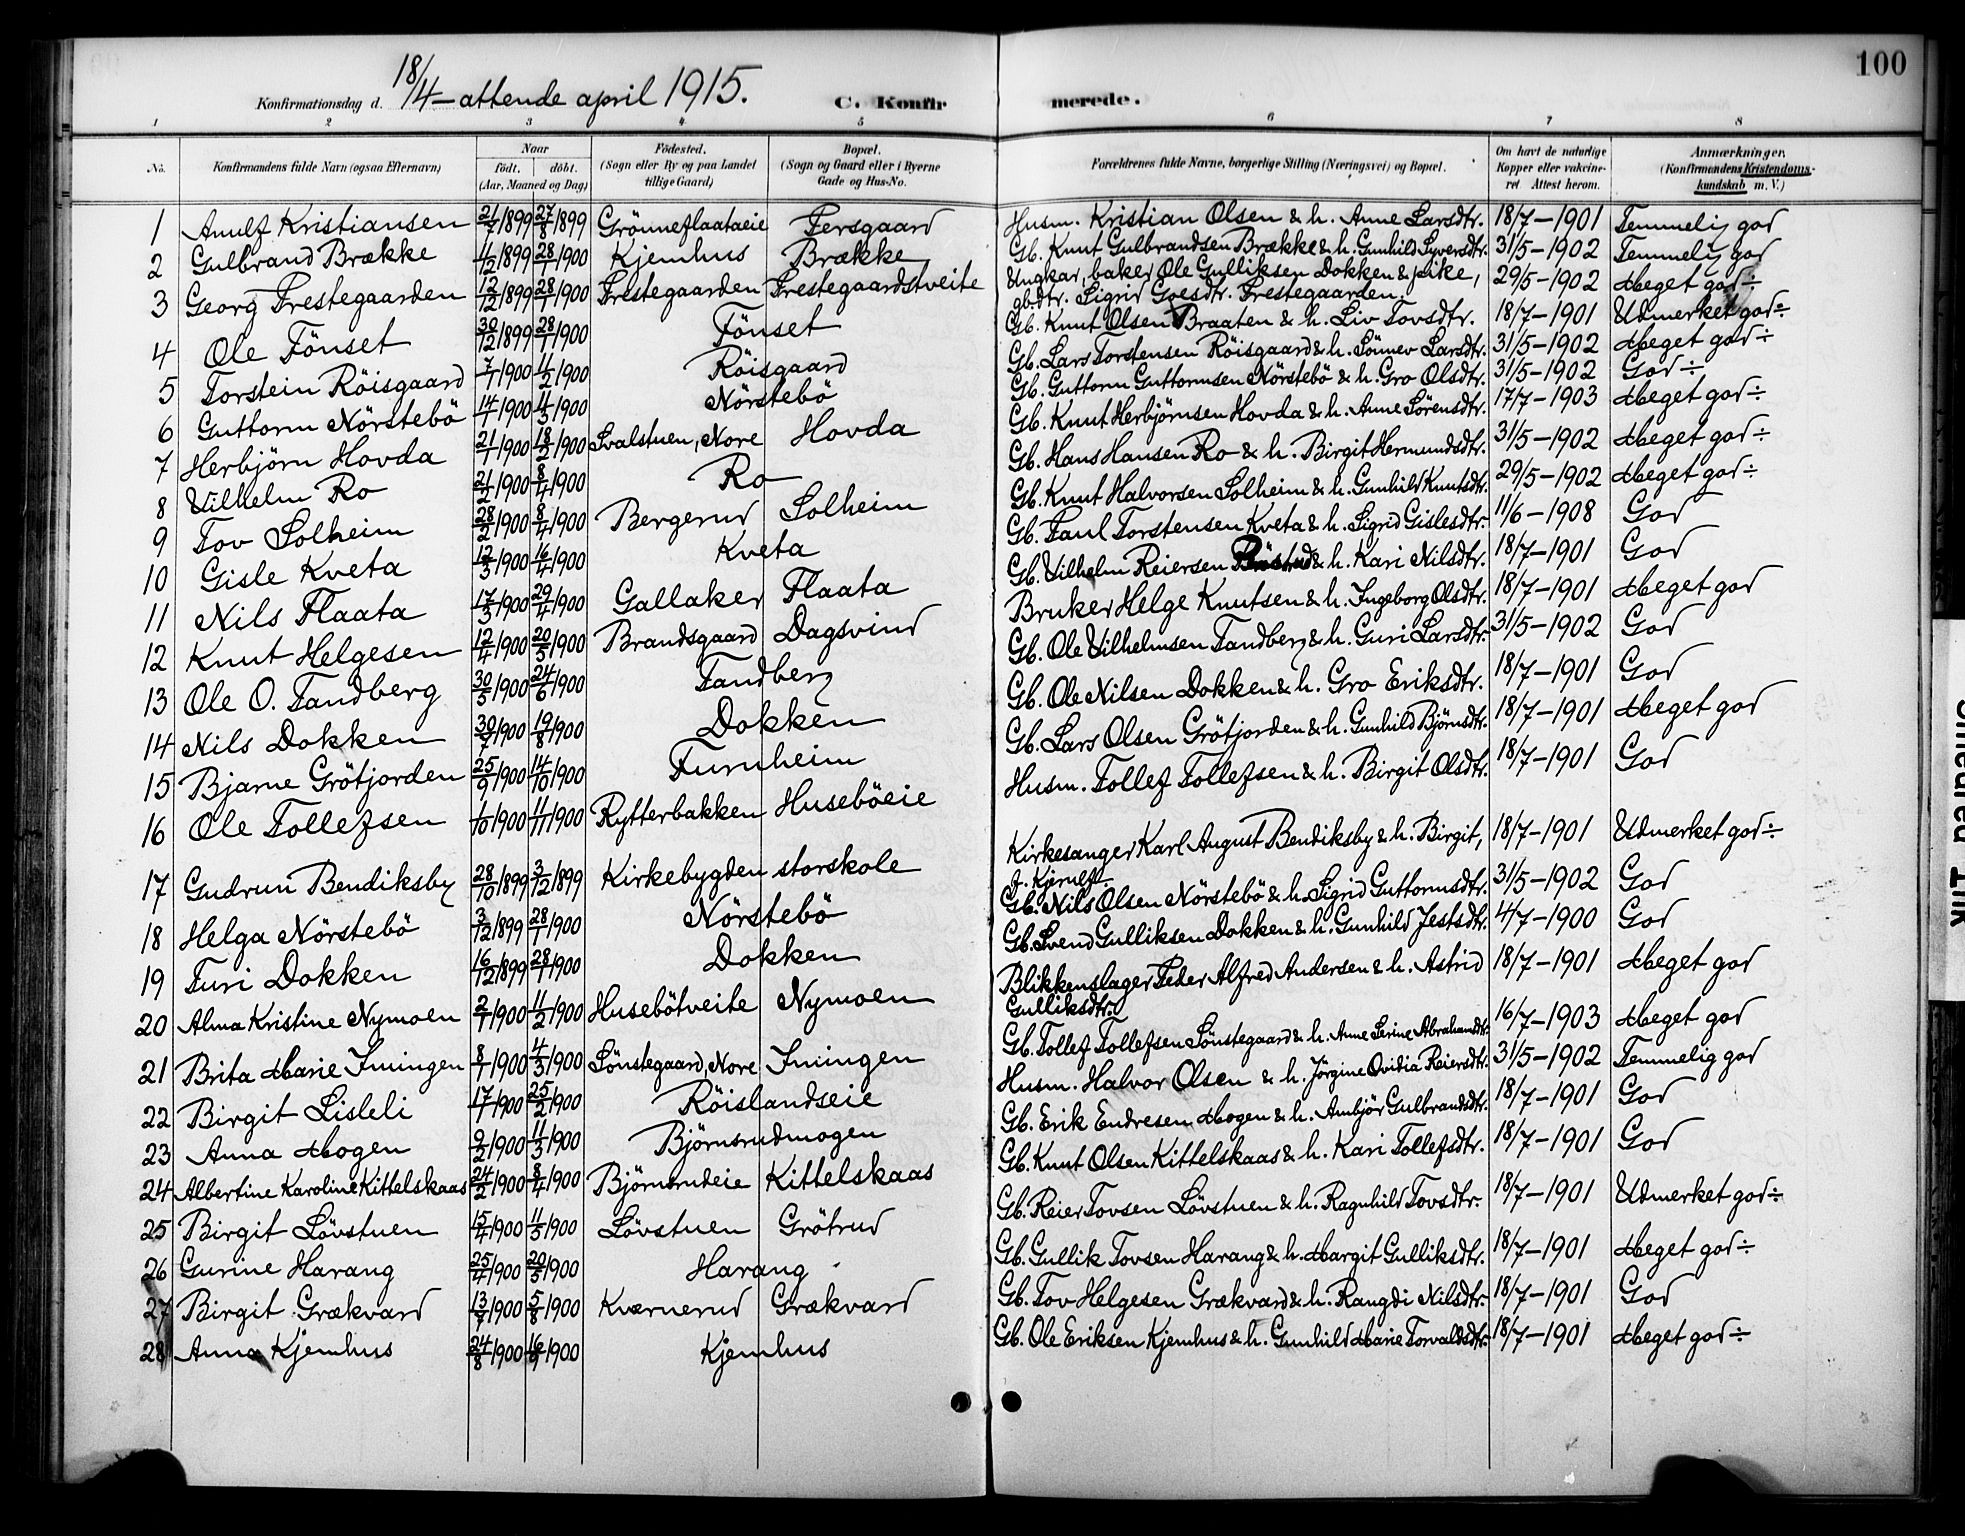 100
Konfirmationsdag d. 18/4 – attende april 1915. C. Konfirmerede.
1 2 3 4 5 6 7 8
No. Konfirmandens fulde Navn (ogsaa Efternavn) Naar født. døbt. (Aar, Maaned og Dag) Födested. (Sogn eller By og paa Landet tillige Gaard) Bopæl. (Sogn og Gaard eller i Byerne Gade og Hus-No. Forældrenes fulde Navne, borgerlige Stilling (Næringsvei) og Bopæl. Om havt de naturlige Kopper eller vakcineret. Attest herom. Anmærkninger. (Konfirmandens Kristendomskundskab m. V.)
1 Arnulf Kristiansen 21/7 1899 27/8 1899 Grönneflaataeie Persgaard Husm. Kristian Olsen & h. Anne Larsdtr. 18/7–1901 Temmelig god
2 Gulbrand Brække 1/12 1899 28/1 1900 Kjemhus Brække Gb. Knut Gulbrandsen Brække & h. Gunhild Syversdtr. 31/5–1902 Temmelig god
3 Georg Prestegaarden 12/12 1899 28/1 1900 Prestegaarden Prestegaardstveite Ungkar, baker Ole Gulliksen Dokken & pike, 29/5–1902 Meget god ÷
gbdtr. Sigrid Goesdtr. Prestegaarden.
4 Ole Fönset 30/12 1899 28/1 1900 Fönset Gb. Knut Olsen Braaten & h. Liv Tovsdtr. 18/7–1901 Udmerket god ÷
5 Torstein Röisgaard 7/1 1900 11/2 1900 Röisgaard Gb. Lars Torstensen Röisgaard & h. Sönnev Larsdtr. 31/5–1902 Meget god ÷
6 Guttorm Nörstebö 14/1 1900 11/3 1900 Nörstebö Gb. Guttorm Guttormsen Nörstebö & h. Gro Olsdtr. 31/5–1902 God ÷
7 Herbjörn Hovda 21/1 1900 18/2 1900 Svalstuen, Nore Hovda Gb. Knut Herbjörnsen Hovda & h. Anne Sörensdtr. 17/7–1903 Meget god ÷
8 Vilhelm Ro 21/2 1900 8/4 1900 Ro Gb. Hans Hansen Ro & h. Birgit Hermundsdtr. 31/5–1902 Meget god ÷
9 Tov Solheim 28/2 1900 8/4 1900 Bergerud Solheim Gb. Knut Halvorsen Solheim & h. Gunhild Knutsdtr. 29/5–1902 Meget god ÷
10 Gisle Kveta 12/3 1900 16/4 1900 Kveta Gb. Paul Torstensen Kveta & h. Sigrid Gislesdtr. 11/6–1908 God
11 Nils Flaata 17/3 1900 29/4 1900 Gallaker Flaata Gb. Vilhelm Reiersen & h. Kari Nilsdtr. 18/7–1901 God
12 Knut Helgesen 12/4 1900 20/5 1900 Brandsgaard Dagsvind Bruker Helge Knutsen & h. Ingeborg Olsdtr. 18/7–1901 Meget god
13 Ole O. Tandberg 30/5 1900 24/6 1900 Tandberg Gb. Ole Vilhelmsen Tandberg & h. Guri Larsdtr. 31/5–1902 God
14 Nils Dokken 30/7 1900 19/8 1900 Dokken Gb. Ole Nilsen Dokken & h. Gro Eriksdtr. 18/7–1901 God
15 Bjarne Grötjorden 25/9 1900 14/10 1900 Furuheim Gb. Lars Olsen Grötjorden & h. Gunhild Björnsdtr. 18/7–1901 Meget god
16 Ole Tollefsen 1/10 1900 11/11 1900 Rytterbakken Husebøeie Husm. Tollef Tollefsen & h. Birgit Olsdtr. 18/7–1901 God
17 Gudrun Bendiksby 28/10 1899 3/12 1899 Kirkebygden storskole Kirkesanger Karl August Bendiksby & h. Birgit, 18/7–1901 Udmerket god ÷
f. Kjernes
18 Helga Nörstebö 3/12 1899 28/1 1900 Nörstebö Gb. Nils Olsen Nörstebö & h. Sigrid Guttormsdtr. 31/5–1902 God
19 Turi Dokken 16/12 1899 28/1 1900 Dokken Gb. Svend Gulliksen Dokken & h. Gunhild Jestsdtr. 4/7–1900 God
20 Alma Kristine Nymoen 2/1 1900 11/2 1900 Husebötveite Nymoen Blikkenslager Peder Alfred Andersen & h. Astrid 18/7–1901 Meget god
Gulliksdtr.
21 Brita Marie Imingen 8/1 1900 4/3 1900 Sönstegaard, Nore Imingen Gb. Tollef Tollefsen Sönstegaard & h. Anne Serine Abrahamdtr. 16/7–1903 Meget god
22 Birgit Lisleli 17/1 1900 25/2 1900 Röislandseie Husm. Halvor Olsen & h. Jörgine Ovidia Reiersdtr. 31/5–1902 Temmelig god
23 Anna Mogen 9/2 1900 11/3 1900 Björnsrudmogen Gb. Erik Endresen Mogen & h. Ambjör Gulbrandsdtr. 18/7–1901 God
24 Albertine Karoline Kittelskaas 24/2 1900 8/4 1900 Björnsrudeie Kittelskaas Gb. Knut Olsen Kittelskaas & h. Kari Tollefsdtr. 18/7–1901 God
25 Birgit Lövstuen 15/4 1900 11/5 1900 Lövstuen Grötrud Gb. Reier Tovsen Lövstuen & h. Ragnhild Tovsdtr. 18/7–1901 Udmerket god ÷
26 Gurine Harang 25/4 1900 20/5 1900 Harang Gb. Gullik Tovsen Harang & h. Margit Gulliksdtr. 18/7–1901 Meget god ÷
27 Birgit Grækvard 13/7 1900 5/8 1900 Kværnerud Grækvard Gb. Tov Helgesen Grækvard & h. Rangdi Nilsdtr. 18/7–1901 God
28 Anna Kjemhus 24/8 1900 16/9 1900 Kjemhus Gb. Ole Eriksen Kjemhus & h. Gunhild Marie Torvaldsdtr. 18/7–1901 Meget god ÷